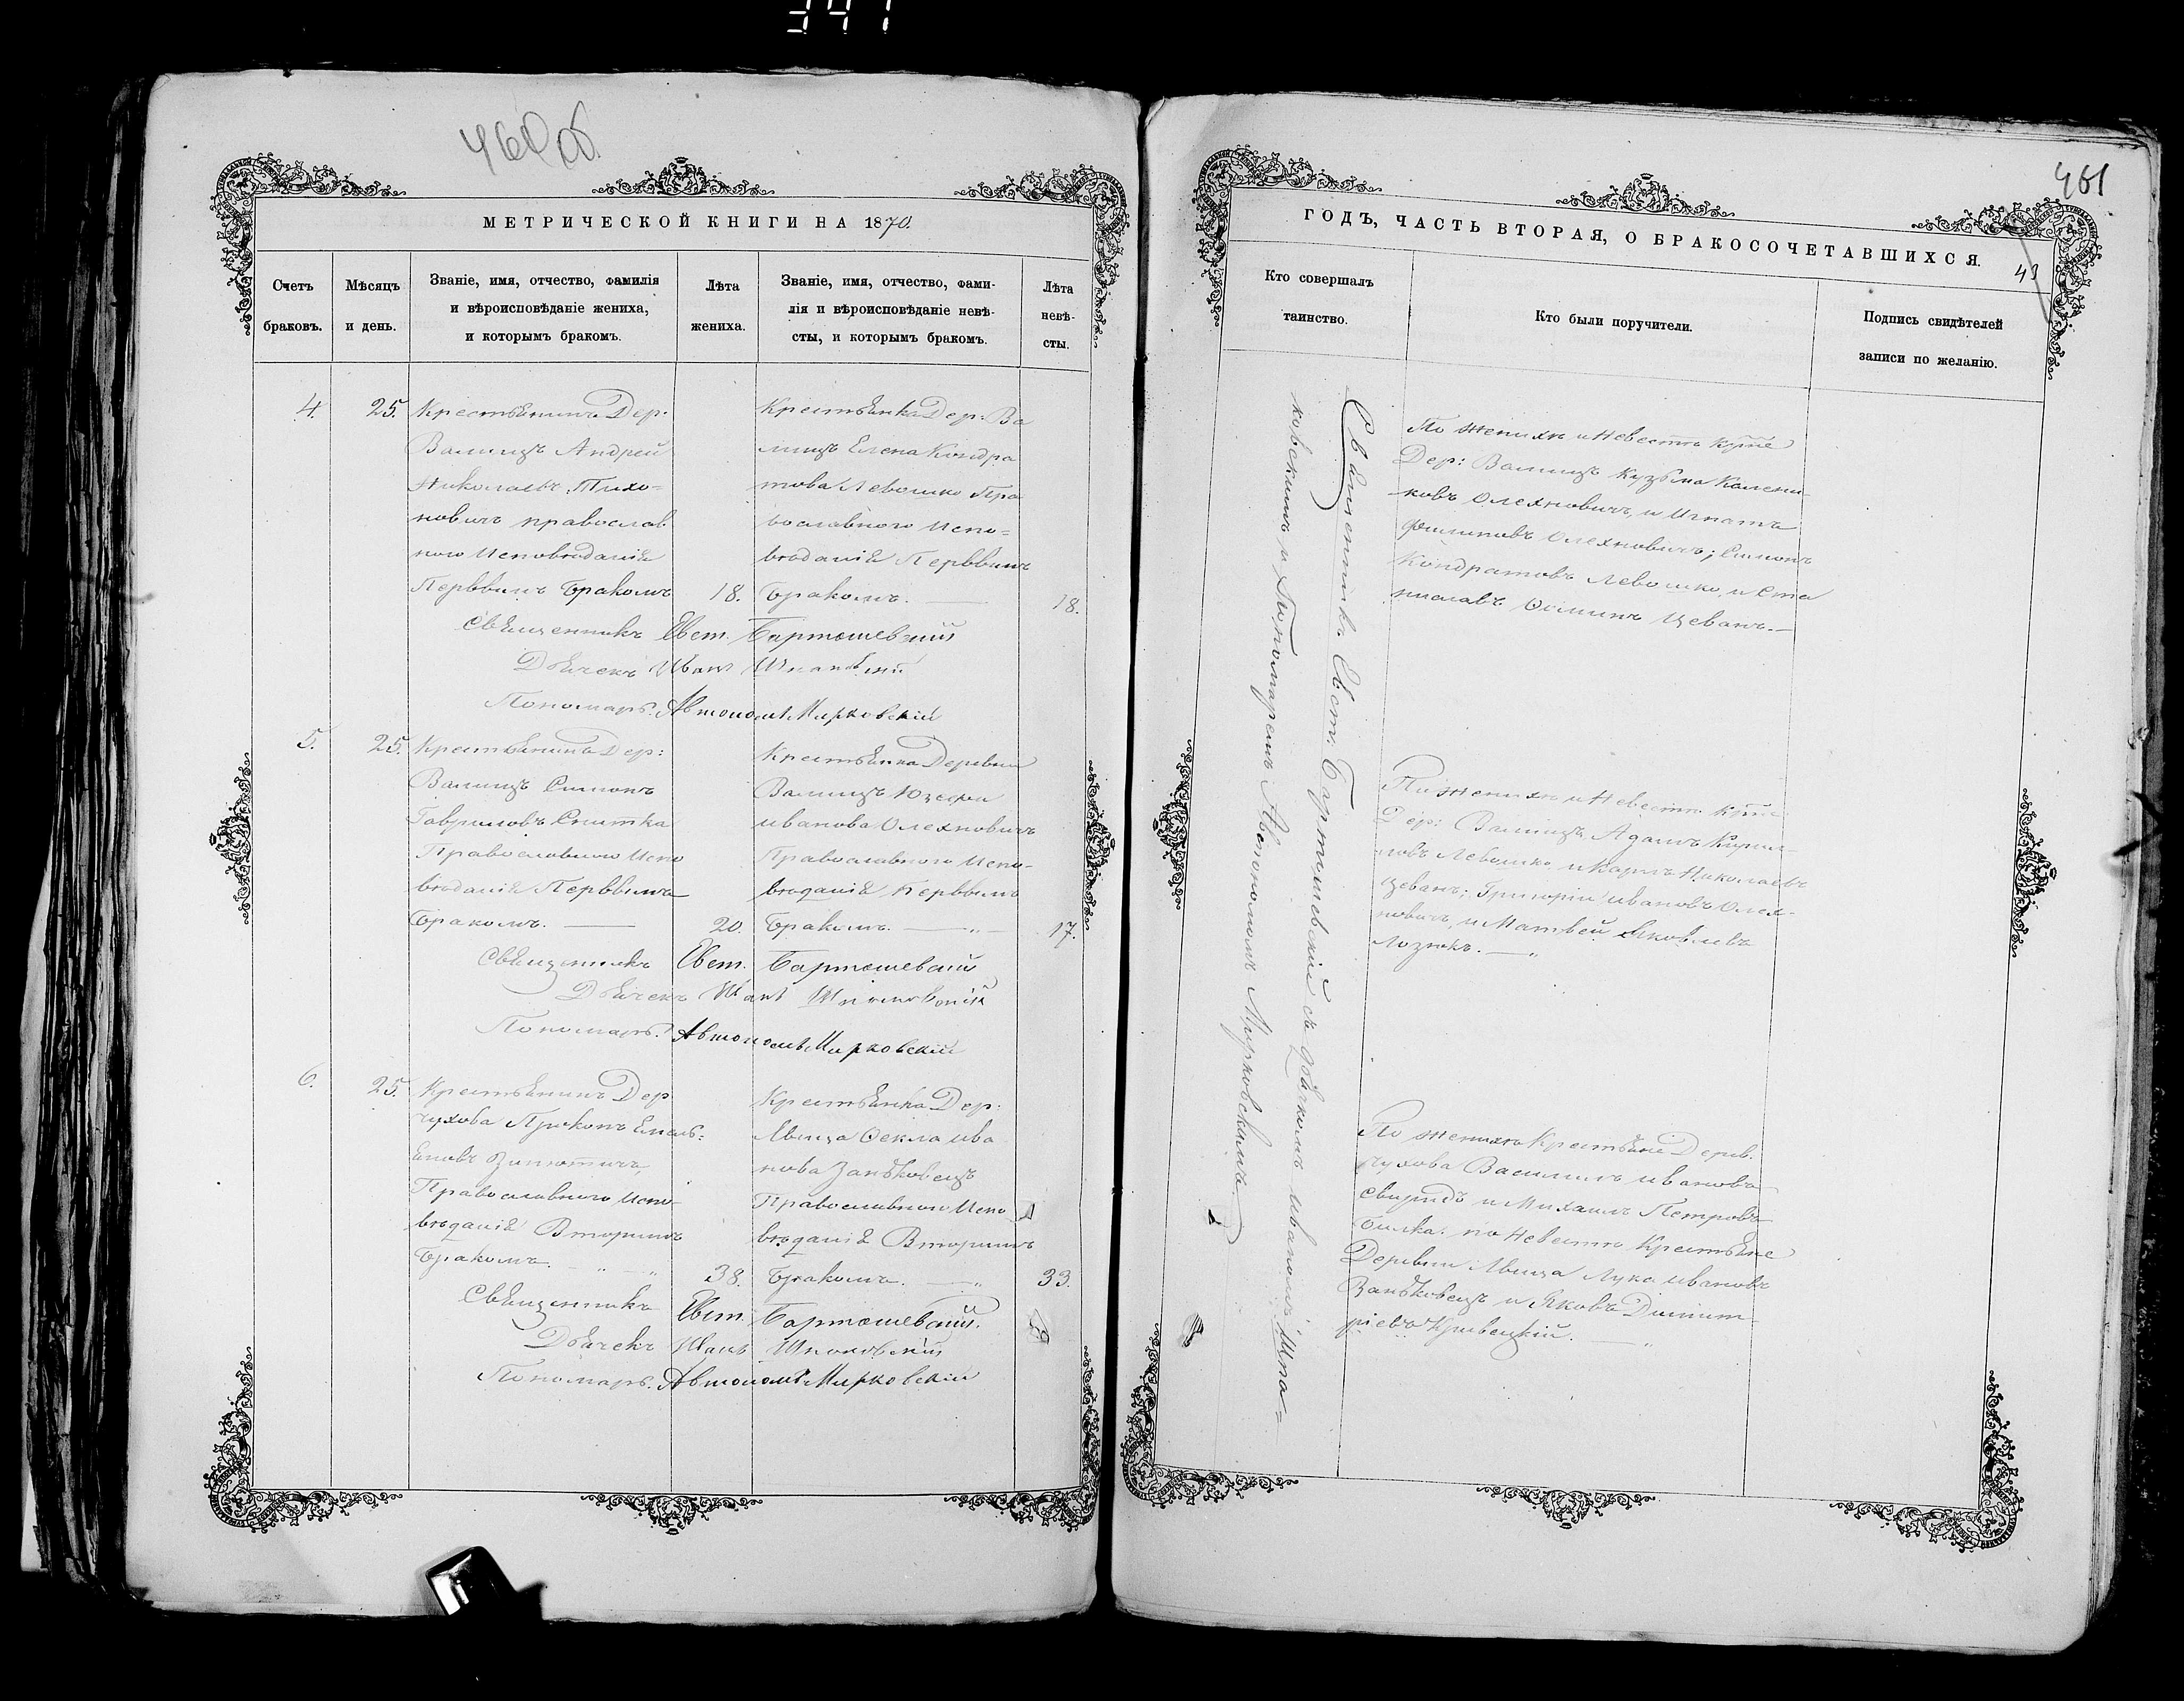 341
460 об.
МЕТРИЧЕСКОЙ КНИГИ НА 1870.
Счетъ
браковъ.
Мѣсяцъ
и день.
Званіе, имя, отчество, фамилія
и вѣроисповѣданіе жениха,
и которымъ бракомъ.
Лѣта
жениха.
Званіе, имя, отчество, фами-
лія и вѣроисповѣданіе невѣ-
сты, и которымъ бракомъ.
Лѣта
невѣ-
сты.
4.
25.
Крестьянинъ Дер:
Валищъ Андрей
Николаевъ Тихо=
новичъ православ
ного Исповѣданія
Перввимъ бракомъ
18.
Крестьянка Дер: Ва
лищъ Елена Кондра
това Левошко Пра
вославного Испо=
вѣданія Перввимъ
бракомъ. —
18.
Священникъ Евст. Бартошевскій
Дьячекъ Иванъ
Пономарь: Автономъ Мирковскій
5.
25.
Крестьянинъ Дер:
Валищъ Симонъ
Гавриловъ Снитка
Православного Испо
вѣданія Перввимъ
бракомъ. —
20.
Крестьянка Деревни
Валищъ Юзефа
Иванова Олехновичъ
Православного Испо-
вѣданія Перввимъ
бракомъ. — „ —
17.
Священникъ Евст. Бартошевскій
Дьячекъ Иванъ
Пономарь: Автономъ Мирковскій
6.
25.
Крестьянинъ Дер
Чухова Прокопъ Емель=
яновъ
Православного Испо-
вѣданія Вторимъ
бракомъ. — „ — „
38.
Крестьянка Дер:
Ѳекла Ива
нова Заньковецъ
Православного Испо
вѣданія Вторимъ
бракомъ. — „
33.
Священникъ Евст. Бартошевскій.
Дьячекъ Иванъ
Пономарь: Автономъ Мирковскій
461
ГОДЪ, ЧАСТЬ ВТОРАЯ, О БРАКОСОЧЕТАВШИХСЯ.
43
Кто совершалъ
таинство.
Кто были поручители.
Подпись свидѣтелей
записи по желанію.
Священникъ Евст. Бартошевскій съ дьячкомъ Иваномъ Шпа=
ковскимъ и Пономаремъ Автономомъ Мирковскимъ. —
По женихѣ и Невестѣ
Дер: Валищъ Кузьма Калени-
ковъ Олехновичъ, и Игнатъ
Филиповъ Олехновичъ; Симонъ
Кондратовъ Левошко, и Ста
ниславъ Осипъ Цеванъ. —
По женихѣ и Невестѣ
Дер: Валищъ Адамъ Кирил-
ловъ Левошко, и Карлъ Николаевъ
Цеванъ; Григорій Ивановъ Олех-
новичъ, и Матвей Яковлевъ
Лозюкъ. — „
По женихѣ Крестьяне Дерев.
Чухова Василилъ Ивановъ
Свиридъ и Михаилъ Петровъ
по Невестѣ Крестьяне
Деревни Лука Ивановъ
Заньковецъ и Яковъ Димит-
ріевъ Кривецкій. — „